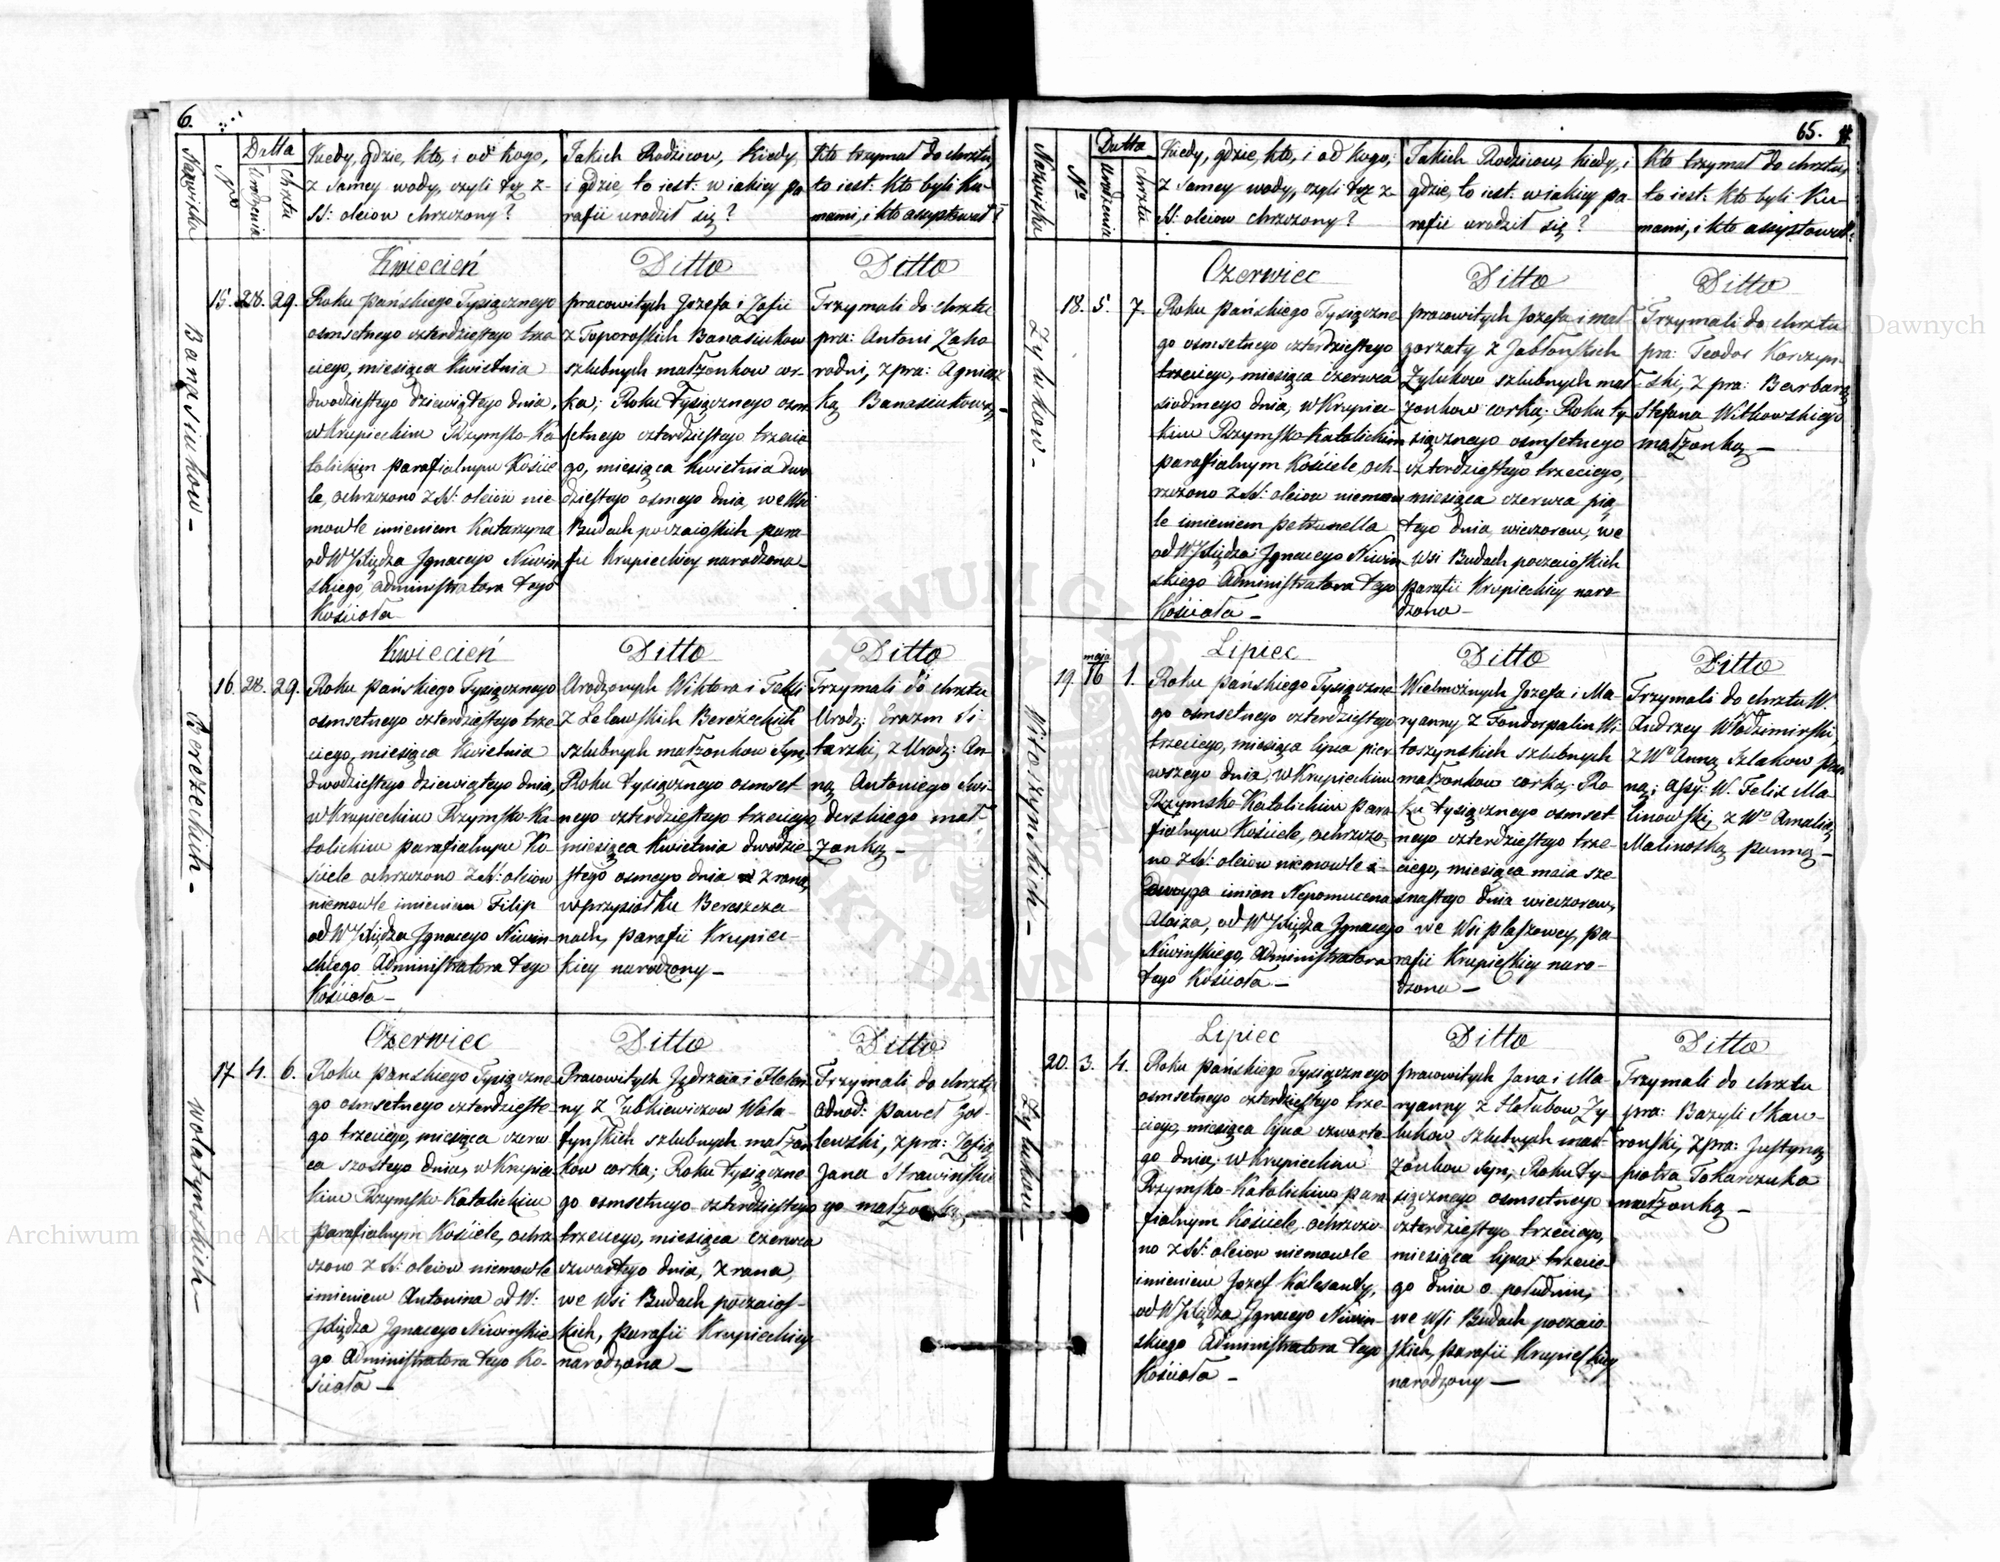 6.
Nazwiska
Nro
Datta
Urodzenia
chrztu
Kiedy, gdzie, kto, i od kogo,
z samey wody, czyli też z
SS: oleiow chrzczony?
Jakich Rodzicow, kiedy,
i gdzie, to iest: w iakiey pa
rafii urodził się?
Kto trzymał do chrztu,
to iest: kto byli ku-
mami, i kto assystował?
Banasiukow -
15. 28. 29.
Kwiecień
Roku pańskiego Tysiącznego
osmsetnego czterdziestego trze
ciego, miesiąca Kwietnia
dwudziestego dziewiątego dnia,
w Krupieckim Rzymsko-Ka
tolickim parafialnym Koście
le, ochrzczono z SS: oleiow nie
mowle imieniem Katarzyna
od WJXiędza Ignacego Niwin
skiego, administratora tego
Kościoła
Ditto
pracowitych Jozefa i Zofii
z Toporoskich Banasiukow
szlubnych małżonkow cor-
ka; Roku Tysiącznego osm
setnego czterdziestego trzecie
go, miesiąca kwietnia dwu
dziestego osmego dnia, we Wsi
Budach poczaioskich para-
fii Krupieckiey narodzona-
Ditto
Trzymali do chrztu
pra: Antoni Zaho
rodni, z pra: Agniesz
ką Banasiukową -
Berezeckich -
16. 28. 29.
Kwiecień
Roku pańskiego Tysiącznego
osmsetnego czterdziestego trze
ciego, miesiąca Kwietnia
dwudziestego dziewiątego dnia,
w Krupieckim Rzymsko-Ka-
tolickim parafialnym Ko-
ściele ochrzczono z SS: oleiow
niemowle imieniem Filip
od WJXiędza Ignacego Niwin-
skiego Administratora tego
Kościoła -
Ditto
Urodzonych Wiktora i Tekli
z Lelawskich Bereżeckich
szlubnych małżonkow Syn,
Roku tysiącznego osmset
nego czterdziestego trzeciego
miesiąca kwietnia dwudzie-
stego osmego dnia z rana,
w przysiołku Bereszcza-
nach, parafii Krupiec-
kiey narodzony -
Ditto
Trzymali do chrztu
Urodz: Erazm Si-
tarzki, z Urodz: An-
ną Antoniego Swi-
derskiego mał
żonką -
Wołatynskich -
17 4. 6.
Czerwiec
Roku pańskiego Tysiączne
go osmsetnego czterdzieste
go trzeciego, miesiąca czerw
ca szostego dnia, w Krupie
kim Rzymsko-Katolickim
parafialnym Kościele, ochrz
czono z SS: oleiow niemowle
imieniem Antonina od W:
JXiędza Ignacego Niwinskie
go Administratora tego Ko-
ścioła -
Ditto
Pracowitych Jędrzeia i Helen
ny z Zubkiewiczow Woła-
tyńskich szlubnych małżon
kow corka; Roku tysiączne
go osmsetnego czterdziestego
trzeciego, miesiąca czerwca
czwartego dnia, z rana,
we Wsi Budach poczaios-
kich, parafii Krupieckiey
narodzona -
Ditto
Trzymali do chrztu
odnod: paweł Goł-
lewski, z pra: Zofią
Jana Strawińskie
go małżonką
65.
Nazwiska
Nro
Datta
Urodzenia
chrztu
Kiedy, gdzie, kto, i od kogo,
z samey wody, czyli też z
SS: oleiow chrzczony?
Jakich Rodzicow, kiedy, i
gdzie, to iest: w iakiey pa-
rafii urodził się?
Kto trzymał do chrztu,
to iest: kto byli Ku-
mami, i kto assystował?
Zylukow -
18. 5. 7.
Czerwiec
Roku pańskiego Tysiączne
go osmsetnego czterdziestego
trzeciego, miesiąca czerwca
siodmego dnia, w Krupiec-
kim Rzymsko-Katolickim
parafialnym Kościele, och-
rzczono z SS: oleiow niemow
le imieniem petrunella
od WJXiędza Ignacego Niwin
skiego Administratora tego
Kościoła -
Ditto
pracowitych Jozefa i mał
gorzaty z Jabłonskich
Zylukow szlubnych mał
żonkow corka; Roku ty-
siącznego osmsetnego
czterdziestego trzeciego,
miesiąca czerwca pią
tego dnia, wieczorem, we
Wsi Budach poczaioskich
parafii Krupieckiey naro-
dzona -
Ditto
Trzymali do chrztu
pra: Teodor Korczyn-
ski, z pra: Barbarą
Stefana Witkowskiego
małżonką -
Witoszynskich -
19. maja 16 1.
Lipiec
Roku pańskiego Tysiączne
go osmsetnego czterdziestego
trzeciego, miesiąca lipca pier
wszego dnia, w Krupieckim
Rzymsko-Katolickim para
fialnym Kościele, ochrzczo-
no z SS: oleiow niemowle
dwoyga imion Nepomucena
Aloiza, od WJXiędza Ignacego
Niwinskiego, Administratora
tego Kościoła -
Ditto
Wielmożnych Jozefa i Ma-
ryanny z Fondorpalin Wi
toszynskich szlubnych
małżonkow corka; Ro-
ku tysiącznego osmset
nego czterdziestego trze-
ciego, miesiąca maia sze
snastego dnia wieczorem,
we Wsi płaszowey, pa-
rafii Krupieckiey naro-
dzona -
Ditto
Trzymali do chrztu W.
Andrzey Włodzimirski,
z Wo Anną Szlakow pan
ną; Assy: W. Felix Ma-
linowski, z Wo Amalią
Malinoską panną -
Zylukow -
20. 3. 4.
Lipiec
Roku pańskiego Tysiącznego
osmsetnego czterdziestego trze-
ciego, miesiąca lipca czwarte
go dnia, w Krupieckim
Rzymsko-Katolickim para
fialnym Kościele, ochrzczo-
no z SS: oleiow niemowle
imieniem Jozef Kalasanty,
od WJXiędza Ignacego Niwin-
skiego Administratora tego
Kościoła -
Ditto
pracowitych Jana i Ma-
ryanny z Hołubow Zy
lukow szlubnych mał-
żonkow syn, Roku ty-
siącznego osmsetnego
czterdziestego trzeciego,
miesiąca lipca trzecie-
go dnia o południu,
we Wsi Budach poczaio
skich, parafii Krupieckiey
narodzony -
Ditto
Trzymali do chrztu
pra: Bazyli Skaw-
ronski, z pra: Justyną
piotra Tokarczuka
małżonką -
Archiwum Główne Akt Dawnych